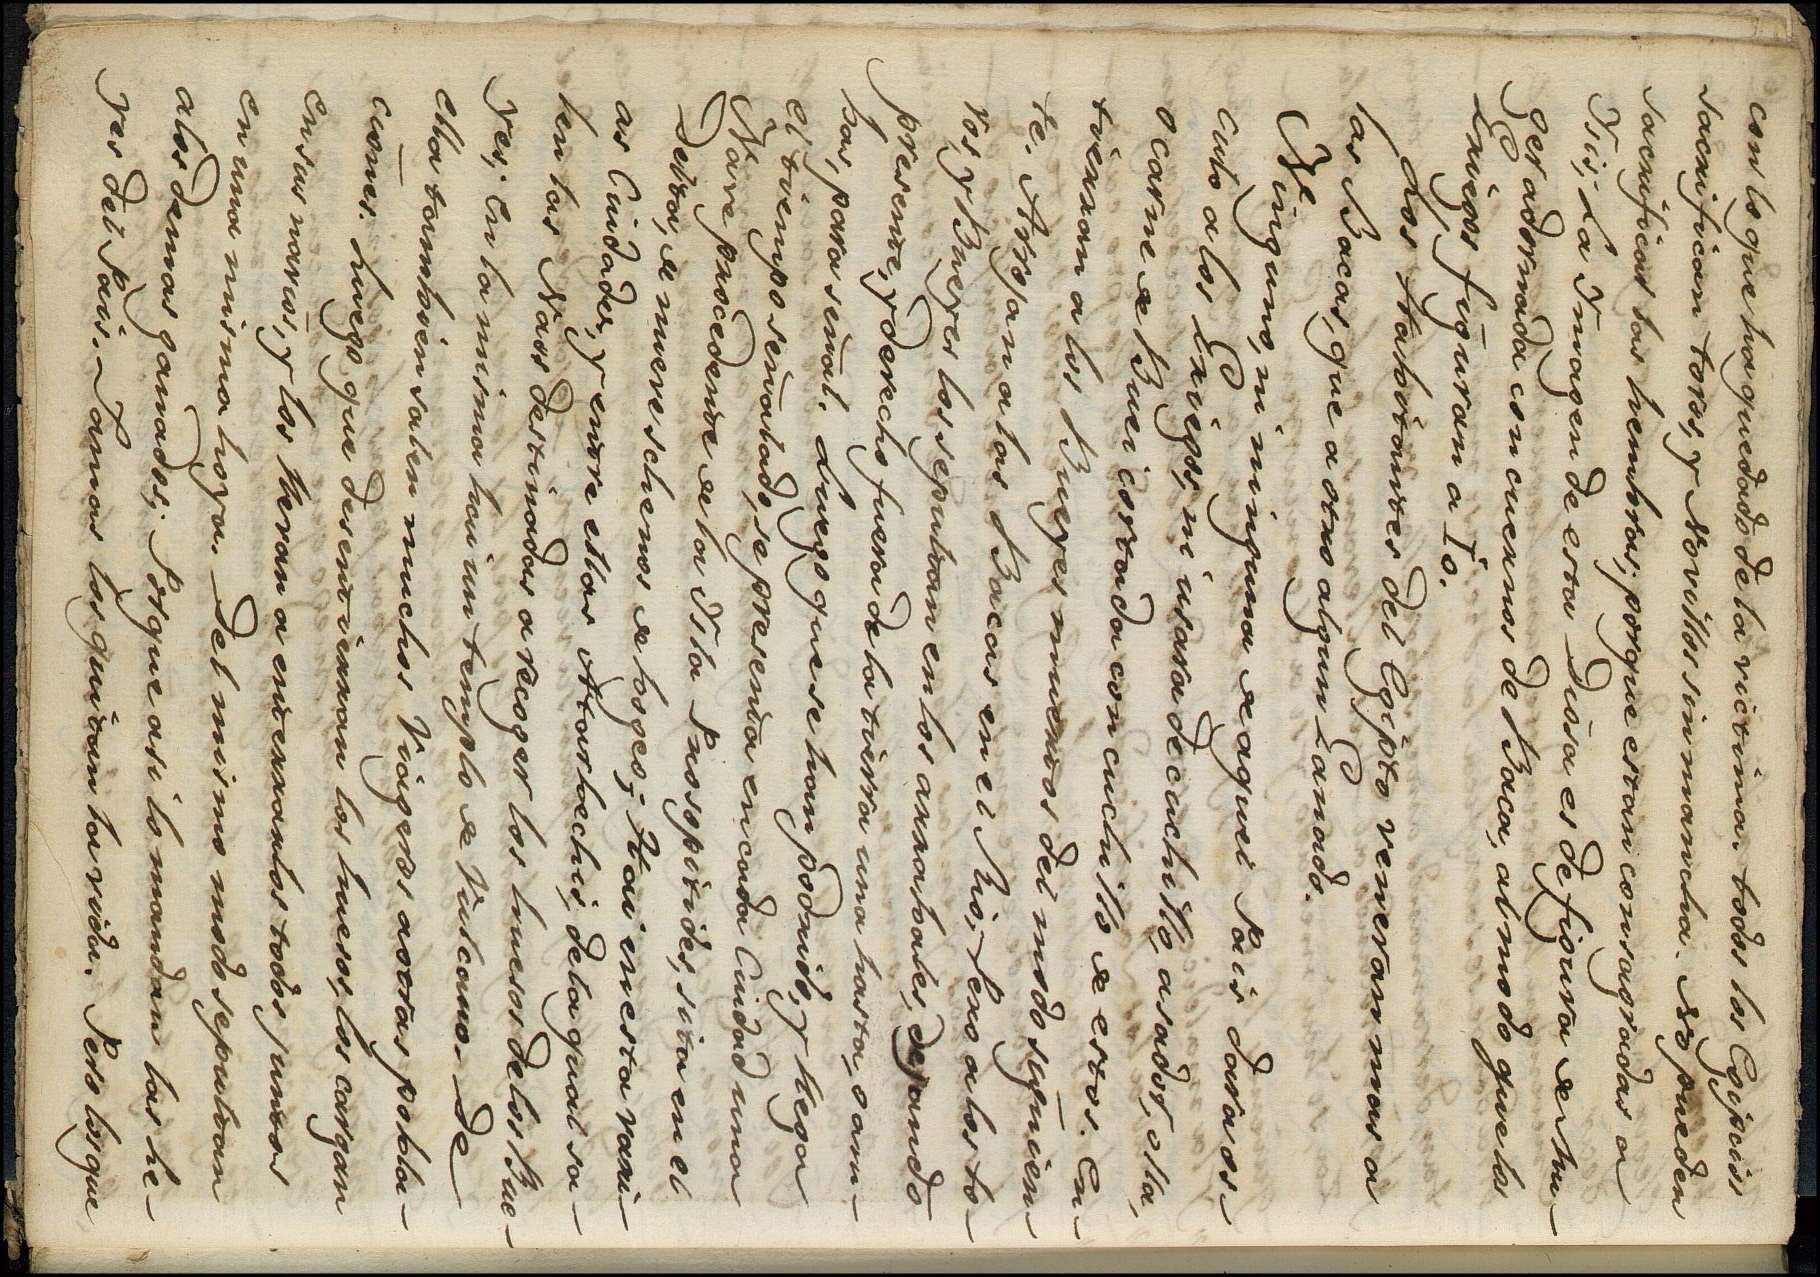 con lo que ha quedado de la victima. todos los Egipcios
sacrifican toros, y Novillos sin mancha. No pueden
sacrificar las hembras; porque estan consagradas a
Isis; La Ymagen de esta Diosa es de figura e Mu-
ger adornada con cuernos de Baca, al modo que los
Griegos figuran a Io.
Los Habitantes del Egipto veneran mas a
las Bacas, que a otro algun Ganado.
Ninguno, ni ninguna e aquel Pais dara os-
culo a los Griegos, ni usara de cuchillo, asador, olla,
o carne e Buei cortada con cuchillo e estos. En-
tierran a los Bueyes muertos del modo siguien-
te. Arrojan a las Bacas en el Rio; Pero a los to-
ros, y Bueyes los sepultan en los arrabales, dejando
presente, y derecho fuera de la tierra una hasta, o am-
bas, para señal. Luego que se han podrido, y llega
el tiempo señalado, se presenta en cada Ciudad una
Nave procedente e la Isla Prosopitides, sita en el
Delta, e nueve schenos e logeo; Hai en esta vari-
as Ciudades, y entre ellas Atarbechis, de la qual sa-
len las Naos destinadas a recoger los huesos de los Bue-
yes; En la misma hai un templo e Vulcano. De
ella tambien salen muchos Viageros a otras pobla-
ciones. Luego que desentierran los huesos, los cargan
en sus naves, y los llevan a enterrarlos todos juntos
en una misma hoya. Del mismo modo sepultan
a los demas ganados; Porque asi lo mandan las le-
yes del Pais. Jamas los quitan la vida. Pero los que